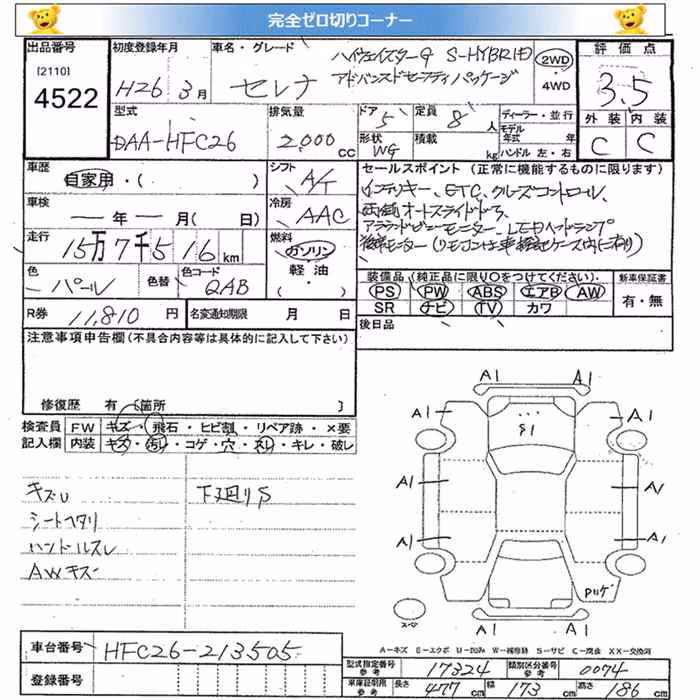 完全ゼロ切りコーナー
出品番号 初度登録年月 車名・グレード ハイウェイスターG S-HYBRID 2WD 評価点
[2110] H26 3月 セレナ アドバンスドセーフティパッケージ ・4WD 3.5
4522
型式 排気量 ドア 定員 ディーラー・並行 外装 内装
DAA-HFC26 2,000cc 5 8人 モデル年式 年 C C
形状 積載 ハンドル 左・右
WG kg
車歴 シフト セールスポイント(正常に機能するものに限ります)
自家用・( ) A/T インテリキー、ETC、クルーズコントロール、
車検 冷房 両側オートスライドドア、
ー年ー月(日) AAC アラウンドビューモニター、LEDヘッドランプ
走行 燃料 後席モニター(リモコンは車検証ケース内に有り)
15万7千516km ガソリン
軽油
・( )
色 色替 色コード 装備品(純正品に限り○をつけてください) 新車保証書
パール QAB PS PW ABS エアB AW 有・無
SR ナビ TV カワ
R券 11,810円 名変通知期限 月 日 後日品
注意事項申告欄(不具合内容等は具体的に記入して下さい)
修復歴 有〔箇所 〕
検査員 FW キズ・飛石・ヒビ割・リペア跡・×要
記入欄 内装 キズ・汚れ・コゲ・穴・スレ・キレ・破レ
キズU 下廻りS
シートヘタリ
ハンドルスレ
AWキズ
A1 A1
A1 A1
A1 A1
A1 A1
A1 A1
スペ
A-キズ E-エクボ U-凹み W-補修跡 S-サビ C-腐食 XX-交換済
車台番号 HFC26-213505
登録番号
型式指定番号 参考 17324 類別区分番号 参考 0074
車庫証明用 参考 長さ 477cm 幅 173cm 高さ 186cm